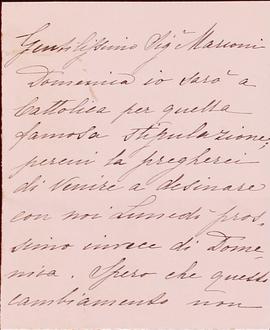 Gentilissimo Sigr Marconi
Domenica io sarò a
Cattolica per quella
famosa stipulazione;
perciò la pregherei
di venire a desinare
con noi Lunedì pros-
simo invece di Dome-
nica. Spero che questo
cambiamento non